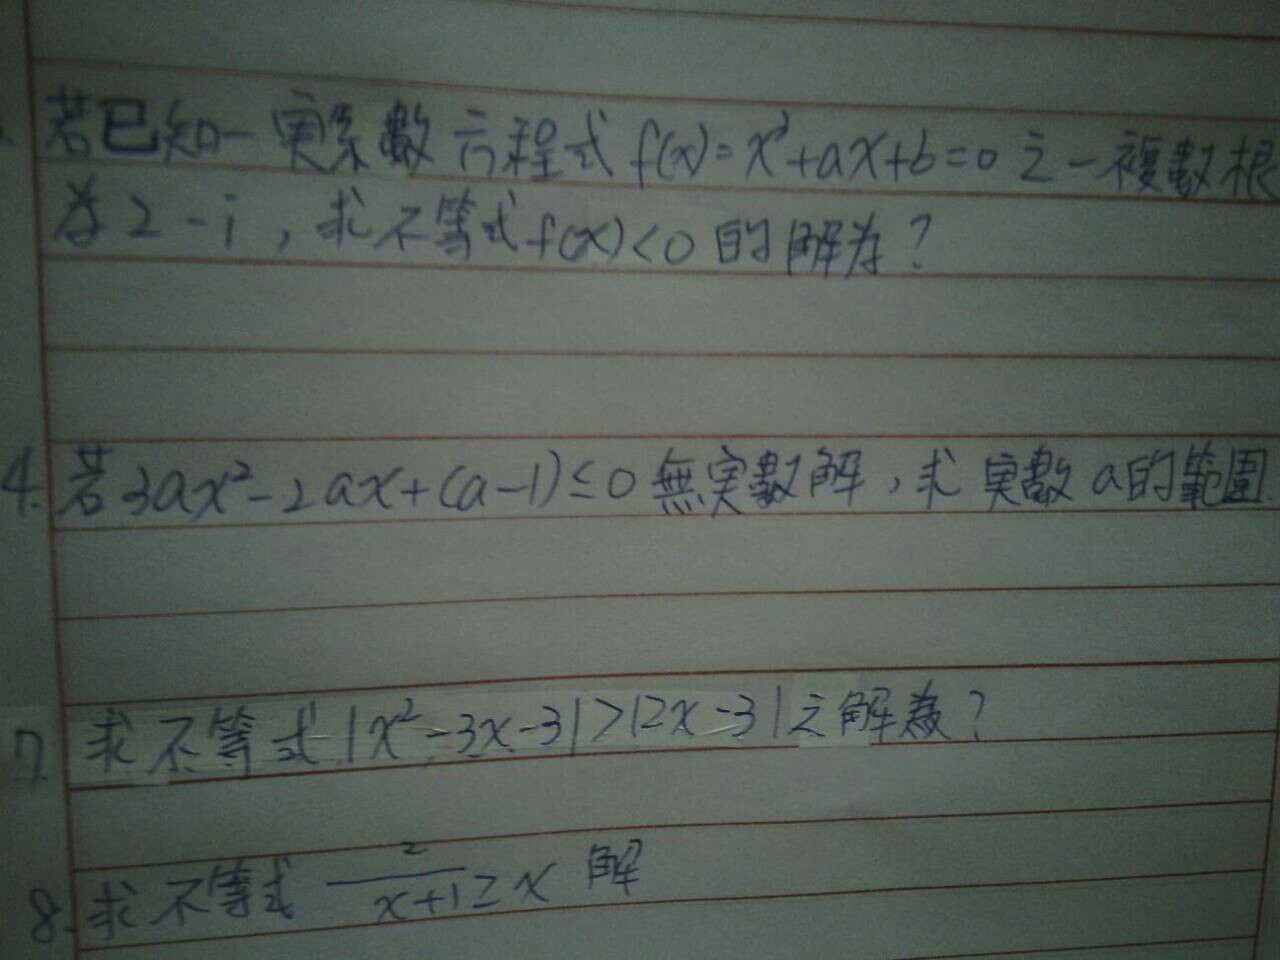 若已知一実係數方程式 f(x)=x³+ax+b=0 之一複數根
為2-i，求不等式f(x)<0的解為？
4. 若3ax²-2ax+(a-1)≤0無実數解，求実數a的範圍.
7 求不等式|x²-3x-3|>|2x-3|之解為？
8. 求不等式 2/(x+1)≥x 解